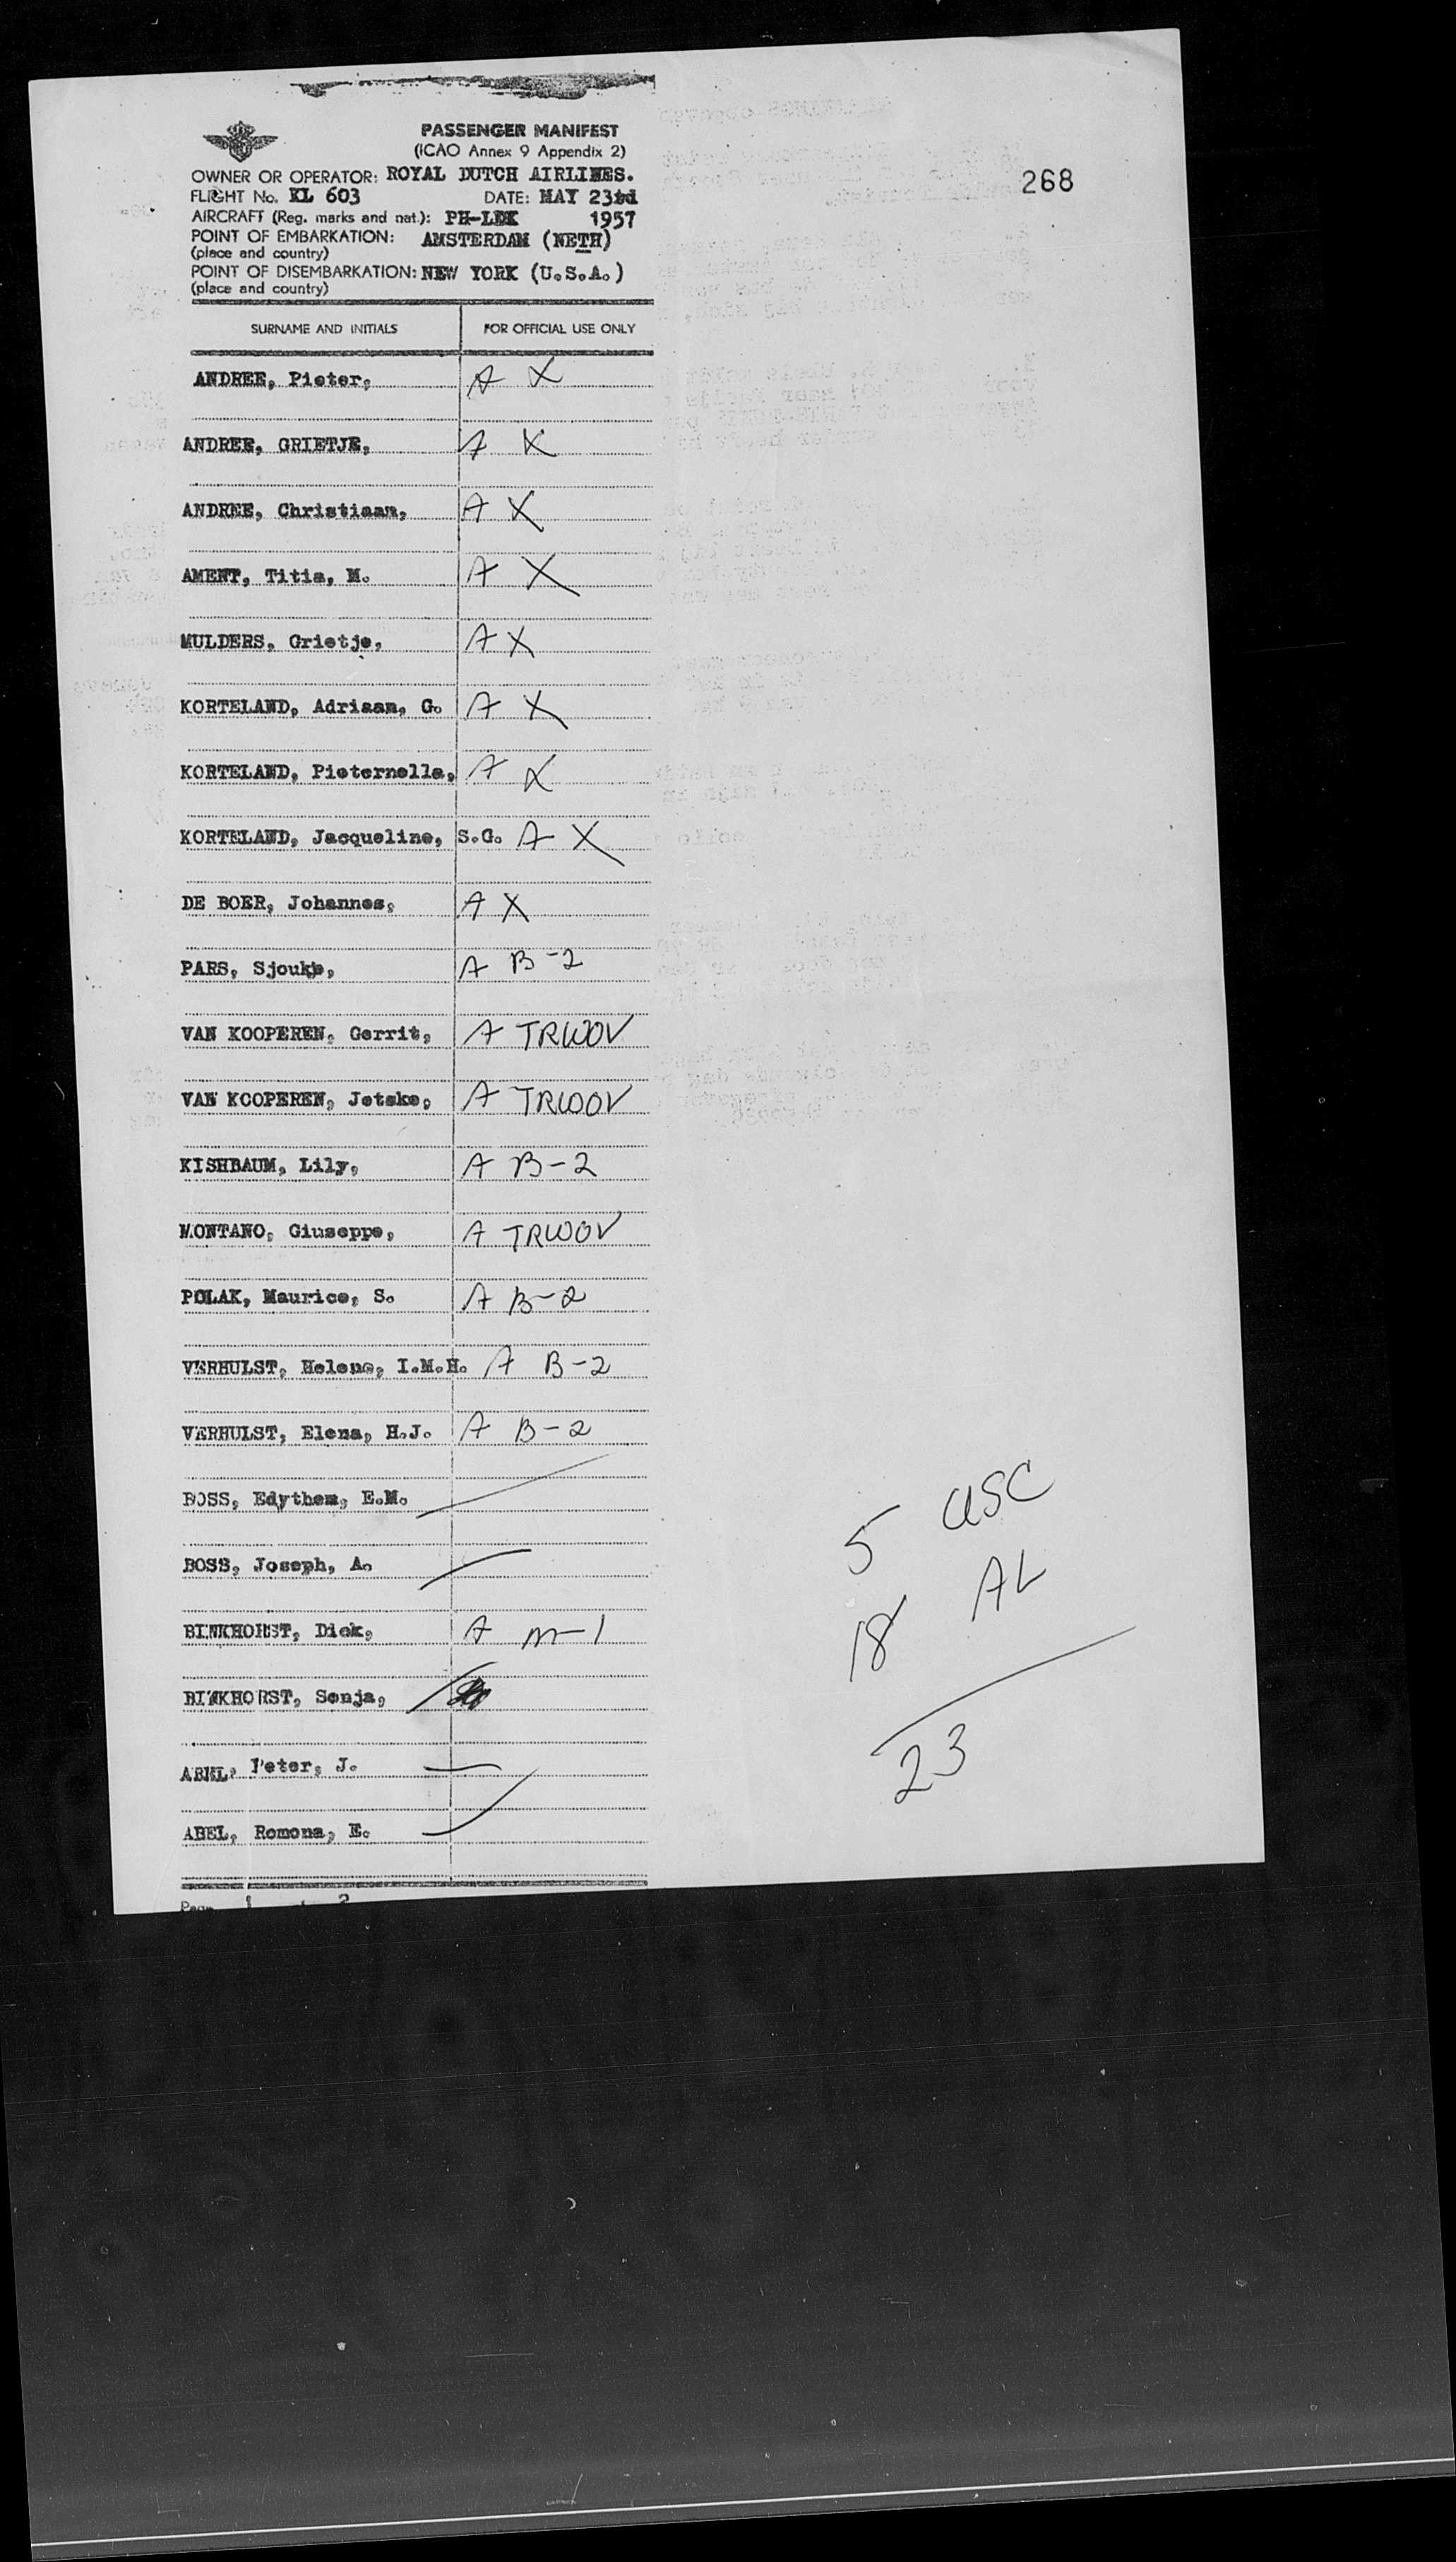 PASSENGER MANIFEST
(ICAO Annex 9 Appendix 2)
OWNER OR OPERATOR: ROYAL DUTCH AIRLINES.
268
FLIGHT No. KL 603 DATE: MAY 23rd
AIRCRAFT (Reg. marks and nat.): PH-LDK 1957
POINT OF EMBARKATION: AMSTERDAM (NETH)
(place and country)
POINT OF DISEMBARKATION: NEW YORK (U.S.A.)
(place and country)
SURNAME AND INITIALS FOR OFFICIAL USE ONLY
ANDREE, Pieter, A X
ANDREE, GRIETJE, A X
ANDREE, Christiaan, A X
AMENT, Titia, M. A X
MULDERS, Grietje, A X
KORTELAND, Adriaan, G. A X
KORTELAND, Pieternella, A X
KORTELAND, Jacqueline, S.G. A X
DE BOER, Johannes, A X
PARS, Sjoukje, A B-2
VAN KOOPEREN, Gerrit, A TRWOV
VAN KOOPEREN, Jetske, A TRWOV
KISHBAUM, Lily, A B-2
MONTANO, Giuseppe, A TRWOV
POLAK, Maurice, S. A B-2
VERHULST, Helene, I.M.H. A B-2
VERHULST, Elena, H.J. A B-2
BOSS, Edythem, E.M.
BOSS, Joseph, A.
BINKHORST, Dick, A M-1
BINKHORST, Sonja,
ABEL, Peter, J.
ABEL, Romona, E.
5 USC
18 AL
23